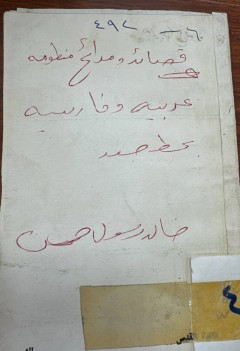 ٤٩٢
قصائد ومدائح منظومه
عربيه وفارسيه
بخط جيد
خالد رسول
٤